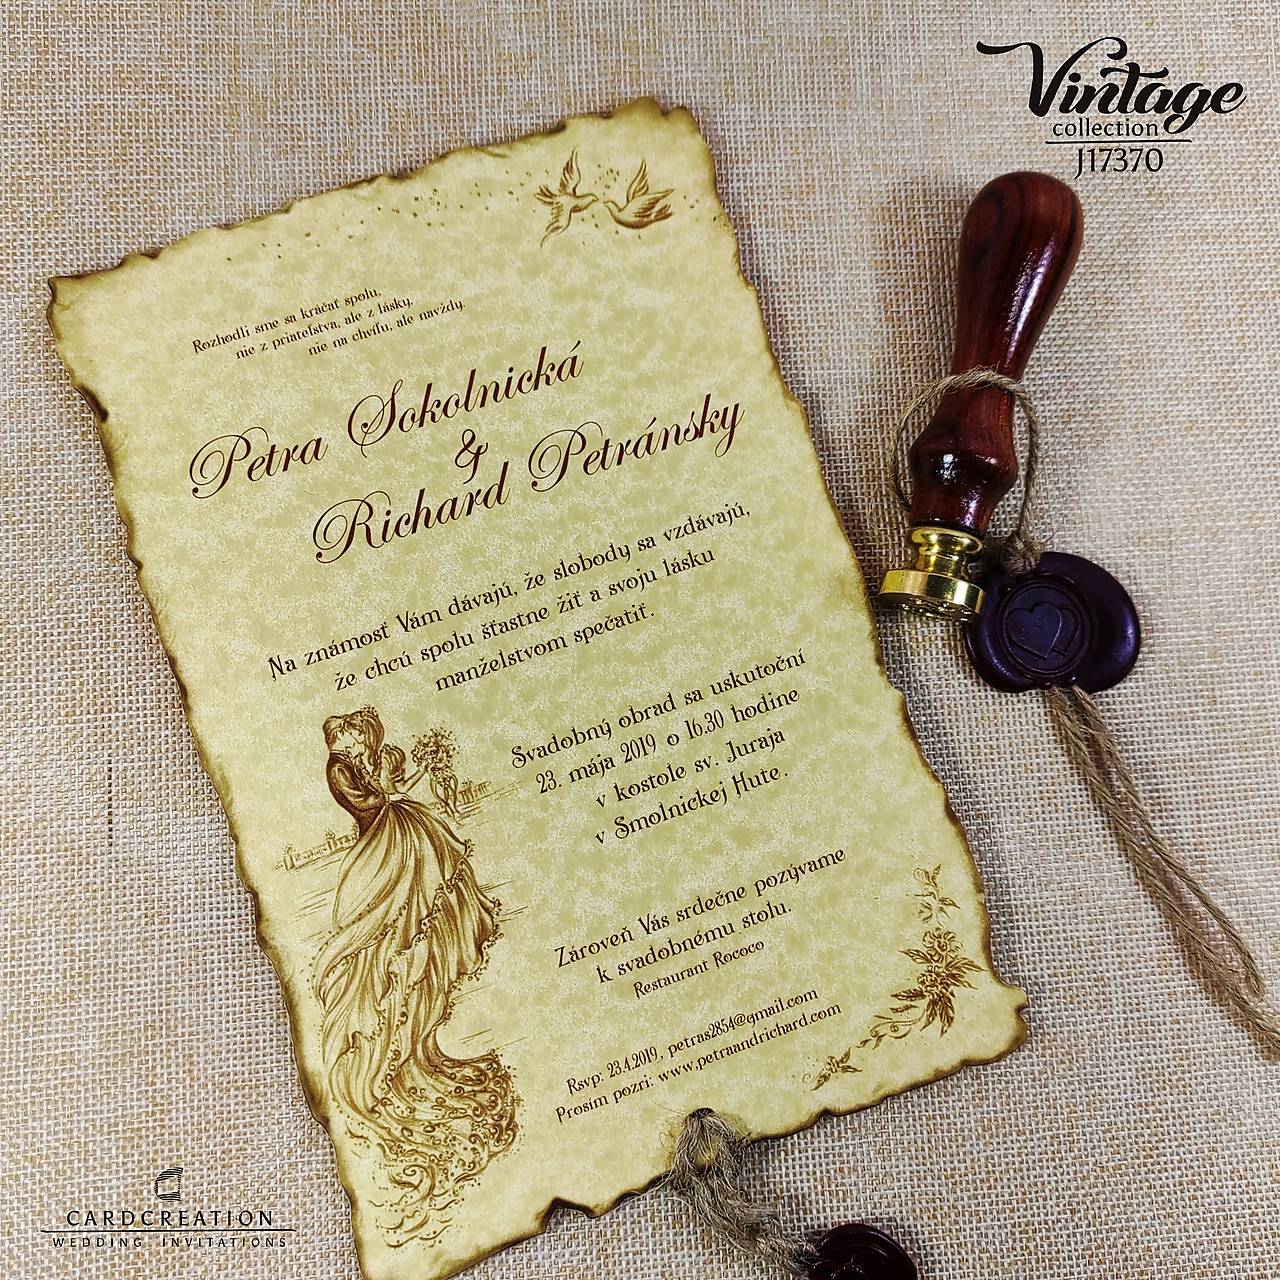 Vintage
collection
J17370
Rozhodli sme sa kráčať spolu,
nie z priateľstva, ale z lásky,
nie na chvíľu, ale navždy.
Petra Sokolnická
&
Richard Petránsky
Na známosť Vám dávajú, že slobody sa vzdávajú,
že chcú spolu šťastne žiť a svoju lásku
manželstvom spečatiť.
Svadobný obrad sa uskutoční
23. mája 2019 o 16.30 hodine
v kostole sv. Juraja
v Smolnickej Hute.
Zároveň Vás srdečne pozývame
k svadobnému stolu.
Restaurant Rococo
Rsvp: 23.4.2019, petras2854@gmail.com
Prosím pozri: www.petraandrichard.com
CARDCREATION
WEDDING INVITATIONS